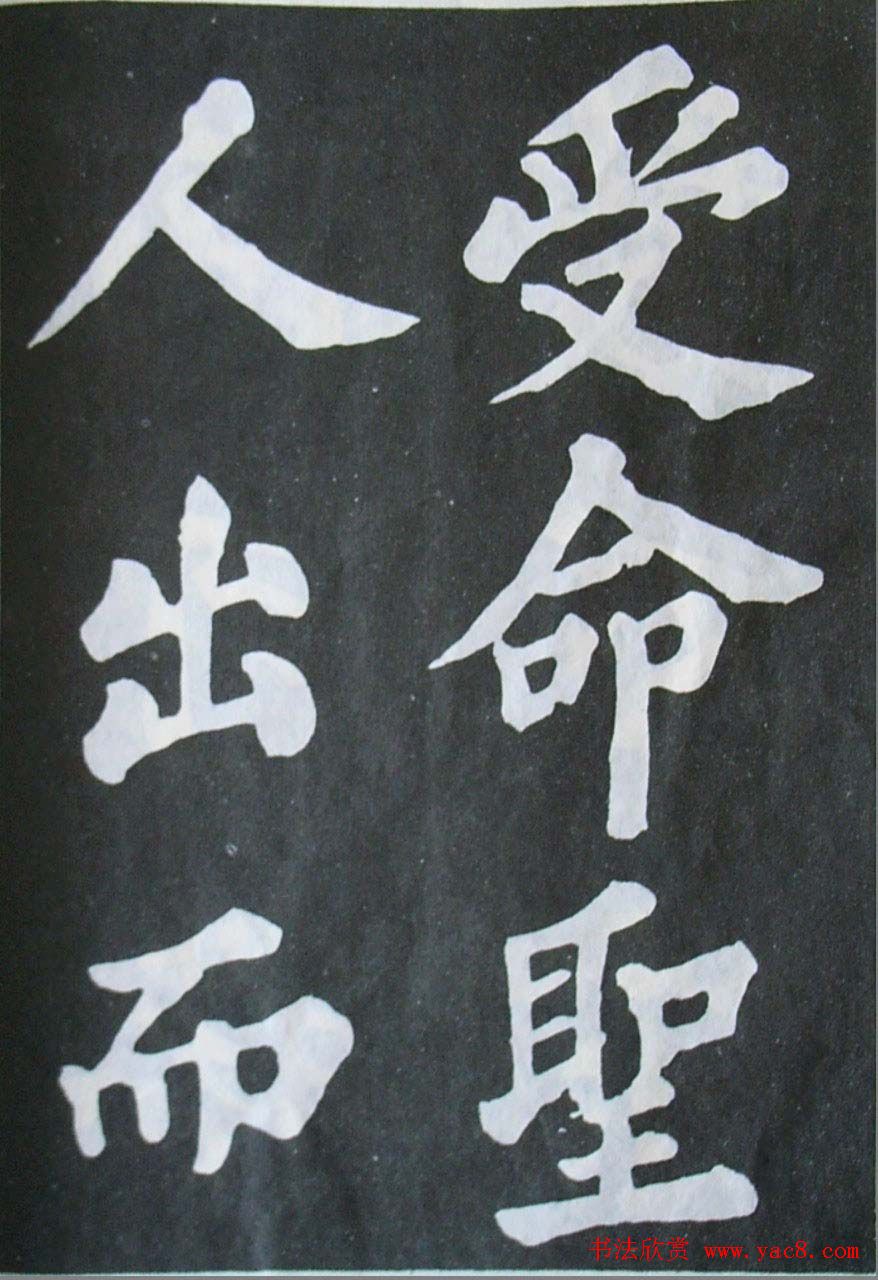 受命聖
人出而
书法欣赏 www.yac8.com